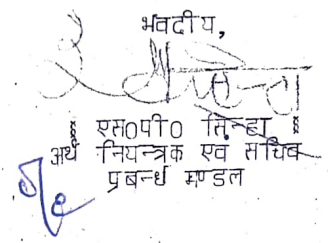 भवदीय,
[ एस0पी0 सिन्हा ]
अर्थ नियन्त्रक एवं सचिव
प्रबन्ध मण्डल